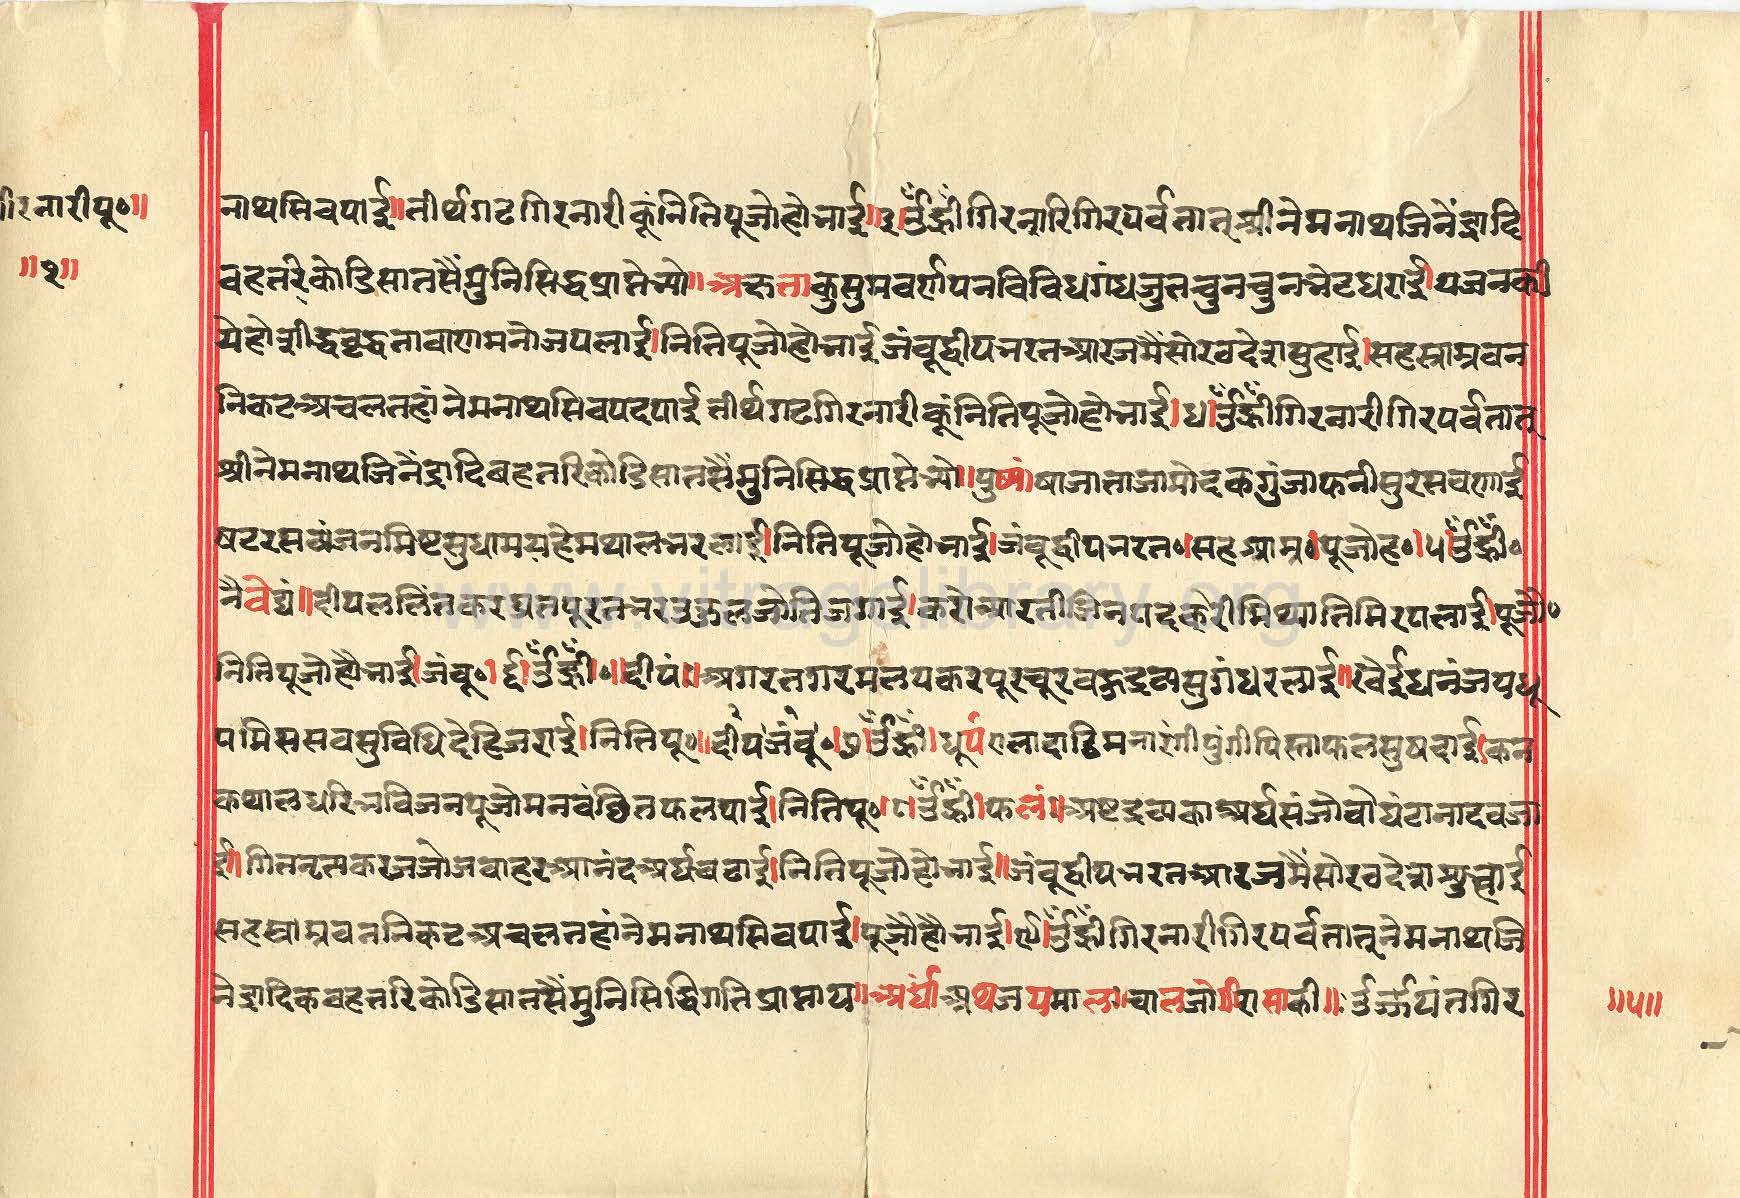 गिरनारीपू०॥
॥२॥
नाथसिवपाई॥तीर्थगढगिरनारीकूंनितिपूजोहोभाई॥३॥ॐह्रींगिरनारिगिरपर्वतात्श्रीनेमनाथजिनेंद्रादि
बहतरिकोडिसातसैंमुनिसिद्धप्राप्तेभ्यो॥अक्षतां॥कुसुमवर्णपनविविधगंधजुतचुनचुनभेटधराई।यजनकी
येहोशीद्धवृद्धतावाणमनोजपलाई।नितिपूजोहोभाई जंबूद्वीपभरतआरजमैंसोरठदेशसुहाई।सहस्राम्रवन
निकटअचलतहांनेमनाथसिवपदपाई तीर्थगढगिरनारीकूंनितिपूजोहोभाई।४।ॐह्रींगिरनारीगिरपर्वतात्
श्रीनेमनाथजिनेंद्रादिबहतरिकोडिसातसैंमुनिसिद्धप्राप्तेभ्यो॥पुष्पं।षाजाताजामोदकगुंजाफनीसुरसवणाई
षटरसव्यंजनमिष्टसुधामयहेमथालभरलाई।नितिपूजोहोभाई।जंबूद्वीपभरत०।सहआम्र०।पूजोह०।५।ॐह्रीं०
नैवेद्यं॥दीपललितकरघ्रतपूरतभरउज्जलजोतिजगाई।करोआरतीजिनपदकेरीमिथ्यातिमिरपलाई।पूजौ०
नितिपूजोहौभाई।जंबू०।६।ॐह्रीं०॥दीपं॥अगरतगरमलयकरपूरचूरवहुद्रव्यसुगंधरलाई॥खेईधनंजयधू
पमिससवसुविधिदेहिजराई।नितिपू०॥दीपजंबू०।७।ॐह्रीं।धूपं एलादाडिमनारंगीपुंगीपिस्ताफलसुषदाई।कन
कथालधरिभविजनपूजोमनवंछितफलपाई।नितिपू०।८।ॐह्रीं।फलं॥अष्टद्रव्यकाअर्घसंजोवोघंटानादवजा
ई॥गितनृत्यकरजजोजवाहरआनंदअर्घचढाई।नितिपूजोहोभाई॥जंबूद्वीपभरतआरजमैंसोरठदेशसुहाई
सहस्राम्रवननिकटअचलतहांनेमनाथसिवपाई।पूजौहौभाई।९।ॐह्रींगिरनारीगिरपर्वतात्नेमनाथजि
नेंद्रादिकबहतरिकोडिसातसैंमुनिसिद्धिगतिप्राप्ताय॥अर्घं॥अथजयमाल॥चालजोगीरासाकी॥
॥५॥
www.vitragelibrary.org